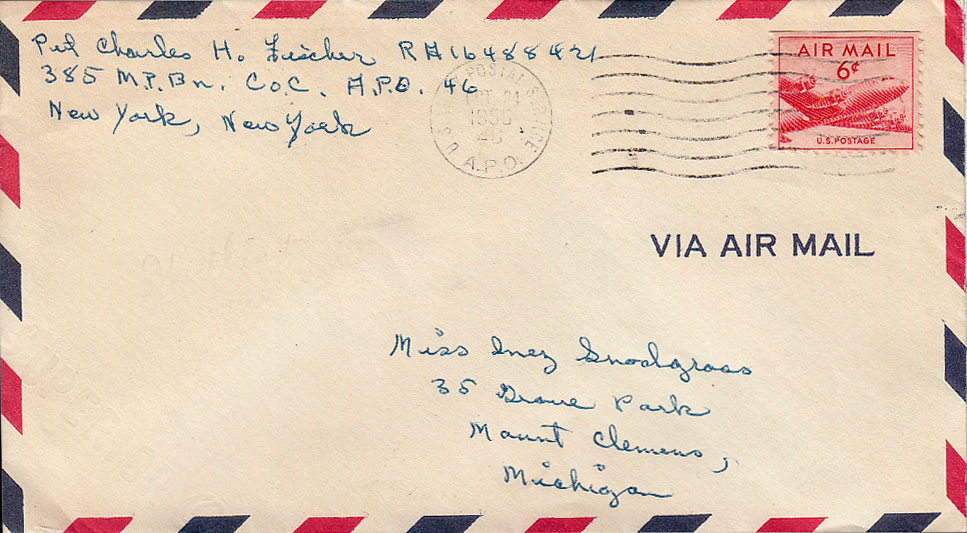 Pvt Charles H. Fischer RA16488421
385 M.P. Bn. Co. C. A.P.O. 46
New York, New York
U.S. POSTAL SERVICE
21
1950
46
A.P.O.
AIR MAIL
6¢
U.S. POSTAGE
VIA AIR MAIL
Miss Inez Snodgrass
35 Grove Park
Mount Clemens,
Michigan